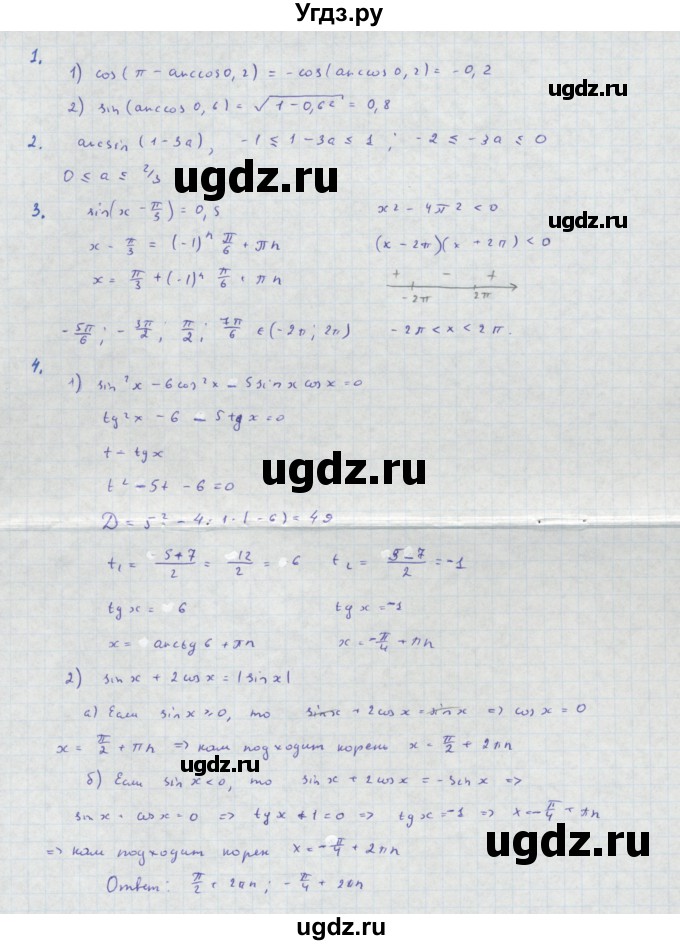 Угдз.ру
1.
1) cos(π - arccos 0,2) = -cos(arccos 0,2) = -0,2
2) sin(arccos 0,6) = √(1-0,6²) = 0,8
угдз.ru
2. arcsin(1-3a), -1 ≤ 1-3a ≤ 1; -2 ≤ -3a ≤ 0
0 ≤ a ≤ 2/3
ugdz.ru
ugdz.ru
3. sin(x - π/3) = 0,5
x - π/3 = (-1)ⁿ π/6 + πn
x = π/3 + (-1)ⁿ π/6 + πn
x² - 4π² < 0
(x - 2π)(x + 2π) < 0
+ - +
-2π 2π
-5π/6; -3π/2; π/2; 7π/6 ∈ (-2π; 2π) -2π < x < 2π.
ugdz.ru
4.
1) sin²x - 6cos²x - 5sinx cosx = 0
tg²x - 6 - 5tgx = 0
t = tgx
ugdz.ru
t² - 5t - 6 = 0
D = 5² - 4·1·(-6) = 49
t₁ = (5+7)/2 = 12/2 = 6 t₂ = (5-7)/2 = -1
ugdz.ru
tgx = 6 tgx = -1
x = arctg 6 + πn x = -π/4 + πn
2) sinx + 2cosx = |sinx|
а) Если sinx ≥ 0, то sinx + 2cosx = sinx => cosx = 0
x = π/2 + πn => нам подходит корень x = π/2 + 2πn
ugdz.ru
б) Если sinx < 0, то sinx + 2cosx = -sinx =>
sinx + cosx = 0 => tgx + 1 = 0 => tgx = -1 => x = -π/4 + πn
ugdz.ru
=> нам подходит корен x = -π/4 + 2πn
Ответ: π/2 + 2πn; -π/4 + 2πn
ugdz.ru
ugdz.ru